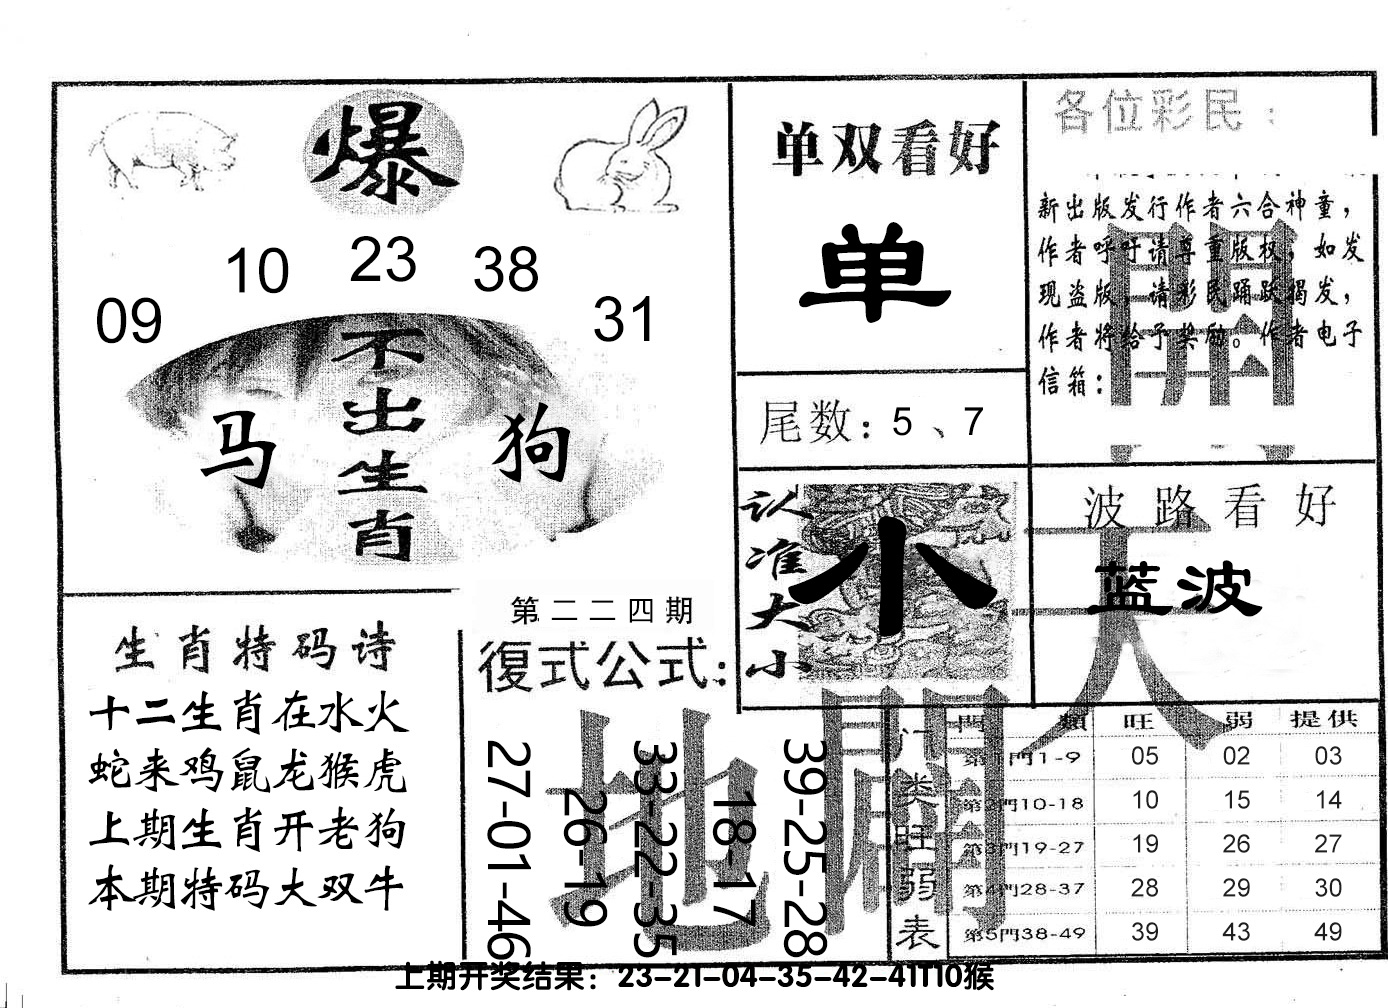 爆
10 23 38
09 31
不出生肖
马 狗
单双看好
单
尾数：5、7
各位彩民：
新出版发行作者六合神童，
作者呼吁请尊重版权，如发
现盗版，请彩民踊跃揭发，
作者将给予奖励。作者电子
信箱：
開
认准大小
小
波路看好
蓝波
天
生肖特码诗
十二生肖在水火
蛇来鸡鼠龙猴虎
上期生肖开老狗
本期特码大双牛
第二二四期
復式公式：
27-01-46
26-19
33-22-35
18-17
39-25-28
地 開
门类旺弱表
門 類 旺 弱 提供
第1門1-9 05 02 03
第2門10-18 10 15 14
第3門19-27 19 26 27
第4門28-37 28 29 30
第5門38-49 39 43 49
上期开奖结果：23-21-04-35-42-41T10猴